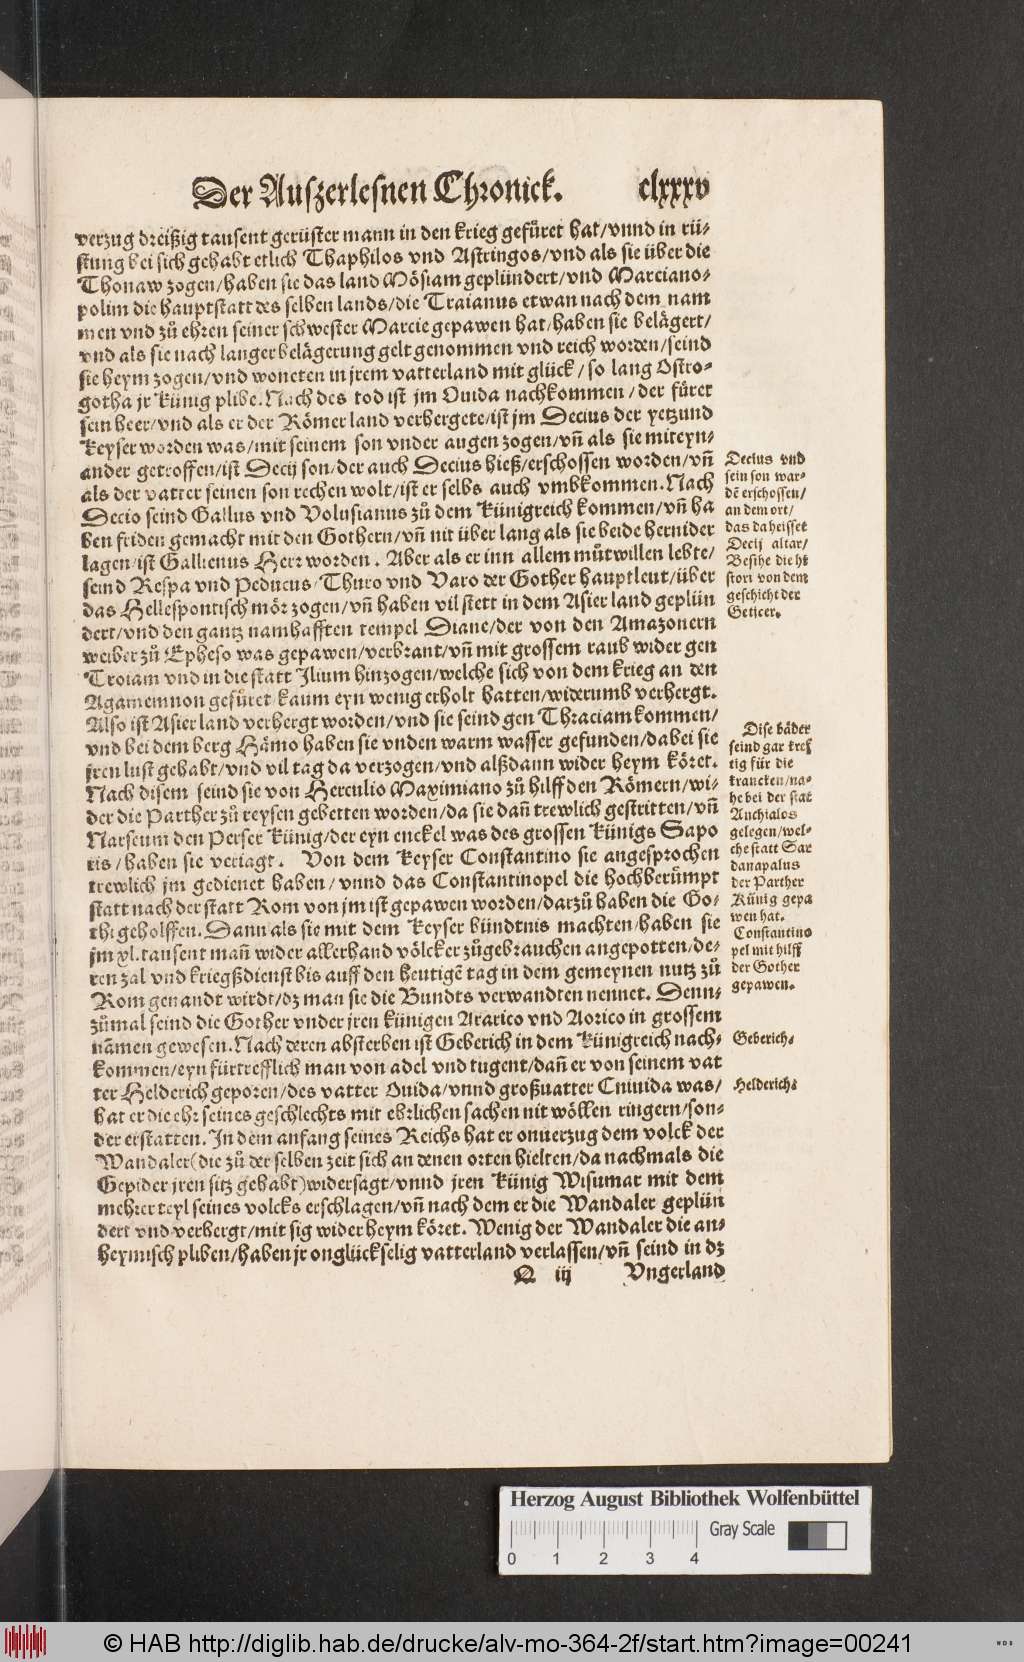 Der Auszerlesnen Chronick. clxxxv
verzug dreißig tausent gerüster mann in den krieg gefüret hat/vnnd in rü-
stung bei sich gehabt etlich Thaphilos vnd Astringos/vnd als sie über die
Thonaw zogen/haben sie das land Mösiam geplündert/vnd Marciano-
polim die hauptstatt des selben lands/die Traianus etwan nach dem nam
men vnd zů ehren seiner schwester Marcie gepawen hat/haben sie belägert/
vnd als sie nach langer belägerung gelt genommen vnd reich worden/seind
sie heym zogen/vnd woneten in jrem vatterland mit glück/so lang Ostro-
gotha jr künig plibe. Nach des tod ist jm Ouida nachkommen/der fůrer
sein heer/vnd als er der Römer land verhergete/ist jm Decius der yetzund
keyser worden was/mit seinem son vnder augen zogen/vñ als sie miteyn-
ander getroffen/ist Decij son/der auch Decius hieß/erschossen worden/vñ
als der vatter seinen son rechen wolt/ist er selbs auch vmbkommen. Nach
Decio seind Gallus vnd Volusianus zů dem künigreich kommen/vñ ha
ben friden gemacht mit den Gothern/vñ nit über lang als sie beide hernider
lagen/ist Gallienus Herr worden. Aber als er inn allem můtwillen lebte/
seind Respa vnd Peducus/Thuro vnd Varo der Gother hauptleut/über
das Hellespontisch mör zogen/vñ haben vil stett in dem Asier land geplün
dert/vnd den gantz namhafften tempel Diane/der von den Amazonern
weiber zů Epheso was gepawen/verbrant/vñ mit grossem raub wider gen
Troiam vnd in die statt Ilium hinzogen/welche sich von dem krieg an den
Agamemnon gefůret kaum eyn wenig erholt hatten/widerumb verhergt.
Also ist Asier land verhergt worden/vnd sie seind gen Thraciam kommen/
vnd bei dem berg Hämo haben sie vnden warm wasser gefunden/dabei sie
jren lust gehabt/vnd vil tag da verzogen/vnd alßdann wider heym köret.
Nach disem seind sie von Herculio Maximiano zů hilff den Römern/wi-
der die Parther zů reysen gebetten worden/da sie dañ trewlich gestritten/vñ
Narseum den Perser künig/der eyn enckel was des grossen künigs Sapo
ris/haben sie veriagt. Von dem keyser Constantino sie angesprochen
trewlich jm gedienet haben/vnnd das Constantinopel die hochberůmpt
statt nach der statt Rom von jm ist gepawen worden/darzů haben die Go-
thi geholffen. Dann als sie mit dem keyser bündtnis machten/haben sie
jm xl. tausent mañ wider allerhand völcker zůgebrauchen angepotten/de-
ren zal vnd kriegßdienst bis auff den heutigē tag in dem gemeynen nutz zů
Rom genandt wirdt/dz man sie die Bundts verwandten nennet. Denn-
zůmal seind die Gother vnder jren künigen Ararico vnd Aorico in grossem
nãmen gewesen. Nach deren absterben ist Geberich in dem künigreich nach-
kommen/eyn fürtrefflich man von adel vnd tugent/dañ er von seinem vat
ter Helderich geporen/des vatter Ouida/vnnd großuatter Cniuida was/
hat er die ehr seines geschlechts mit ehrlichen sachen nit wöllen ringern/son-
der erstatten. In dem anfang seines Reichs hat er onuerzug dem volck der
Wandaler (die zů der selben zeit sich an denen orten hielten/da nachmals die
Gepider jren sitz gehabt) widersagt/vnnd jren künig Wisumar mit dem
mehrer teyl seines volcks erschlagen/vñ nach dem er die Wandaler geplün
dert vnd verhergt/mit sig wider heym köret. Wenig der Wandaler die an-
heymisch pliben/haben jr onglückselig vatterland verlassen/vñ seind in dz
Q iij Vngerland
Decius vnd
sein son wur-
dē erschossen/
an dem ort/
das da heisset
Decij altar/
Besihe die hi
stori von dem
geschicht der
Geticer.
Dise båder
seind gar kref
tig für die
krancken/na-
he bei der stat
Anchialos
gelegen/wel-
che statt Sar
danapalus
der Parther
Künig gepa
wen hat.
Constantino
pel mit hilff
der Gother
gepawen.
Geberich.
Helderich.
Herzog August Bibliothek Wolfenbüttel
Gray Scale
0 1 2 3 4
© HAB http://diglib.hab.de/drucke/alv-mo-364-2f/start.htm?image=00241